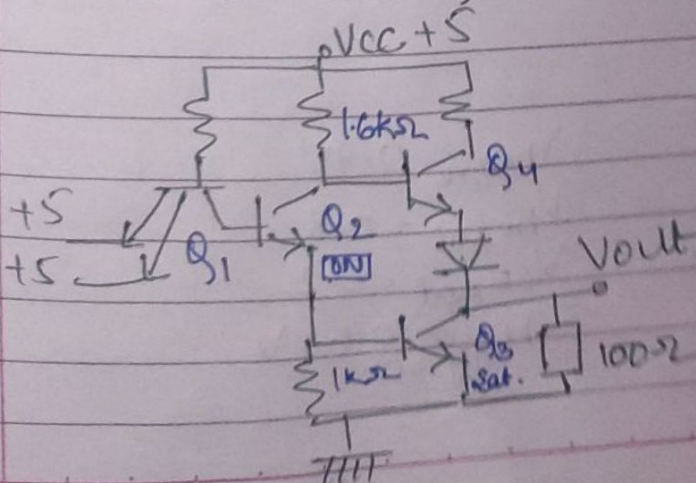 VCC + 5
1.6kΩ
Q4
+5
+5
Q1
Q2
ON
Vout
Q3
Sat.
1kΩ
100Ω